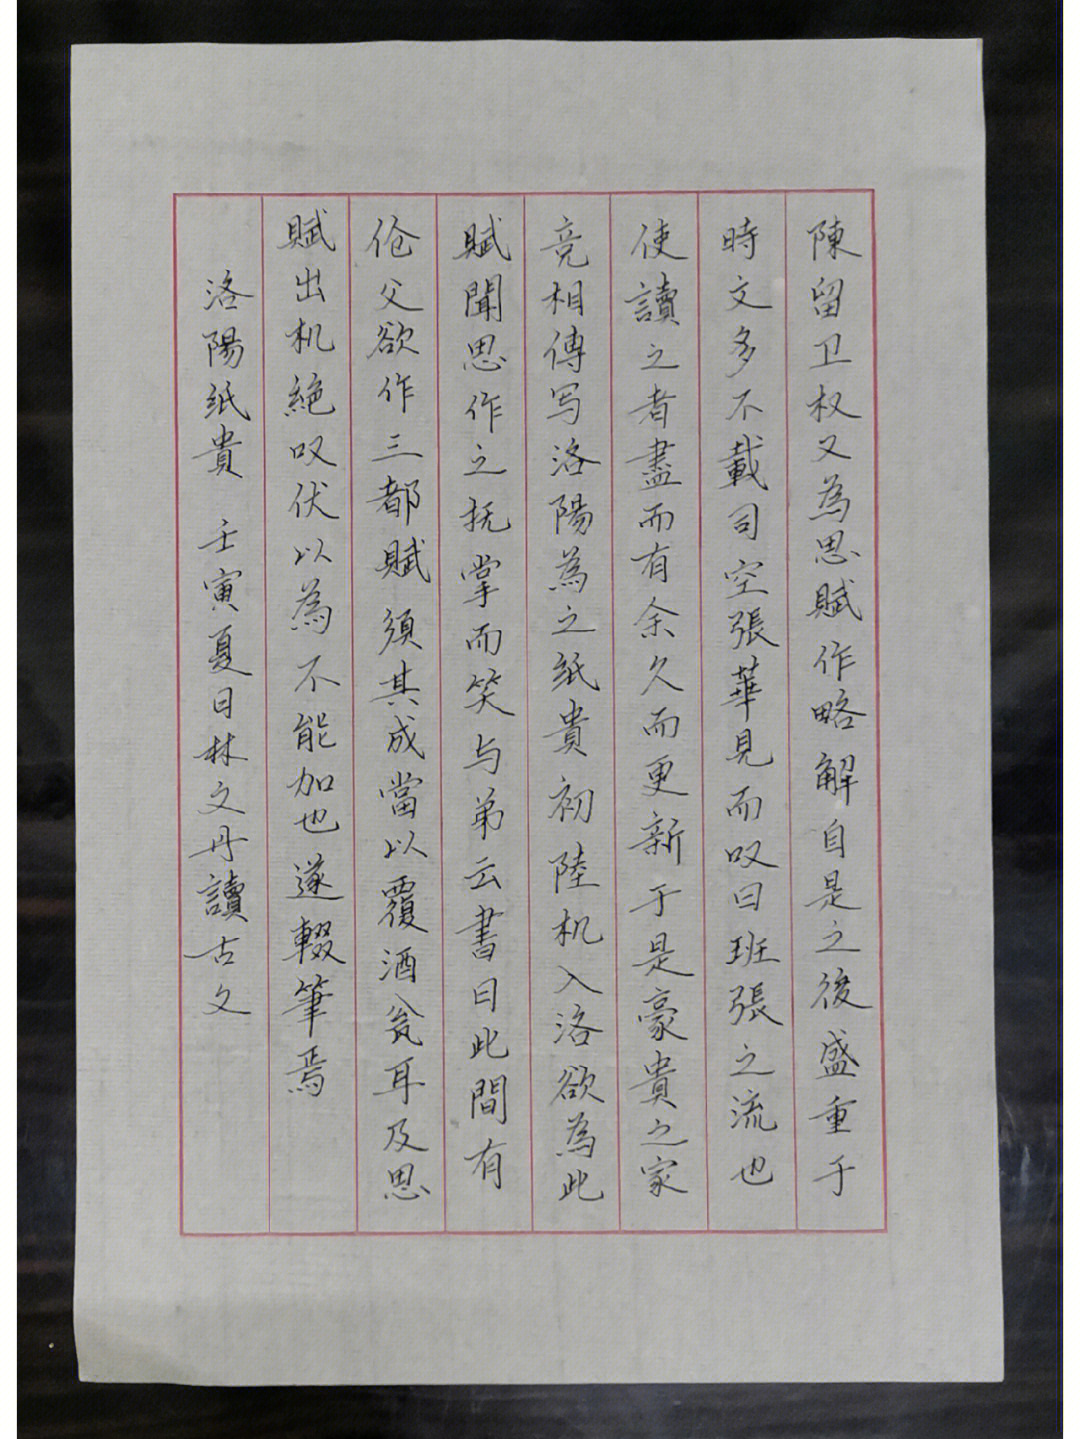 陳留卫权又為思賦作略解自是之後盛重于
時文多不載司空張華見而叹曰班張之流也
使讀之者盡而有余久而更新于是豪貴之家
竞相傳写洛陽為之紙貴初陸机入洛欲為此
賦聞思作之抚掌而笑与弟云書曰此間有
伧父欲作三都賦須其成當以覆酒瓮耳及思
賦出机絶叹伏以為不能加也遂輟筆焉
洛陽紙貴 壬寅夏日林文丹讀古文